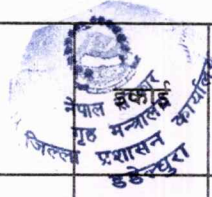 इकाई
नेपाल सरकार
गृह मन्त्रालय
जिल्ला प्रशासन कार्यालय
डडेल्धुरा